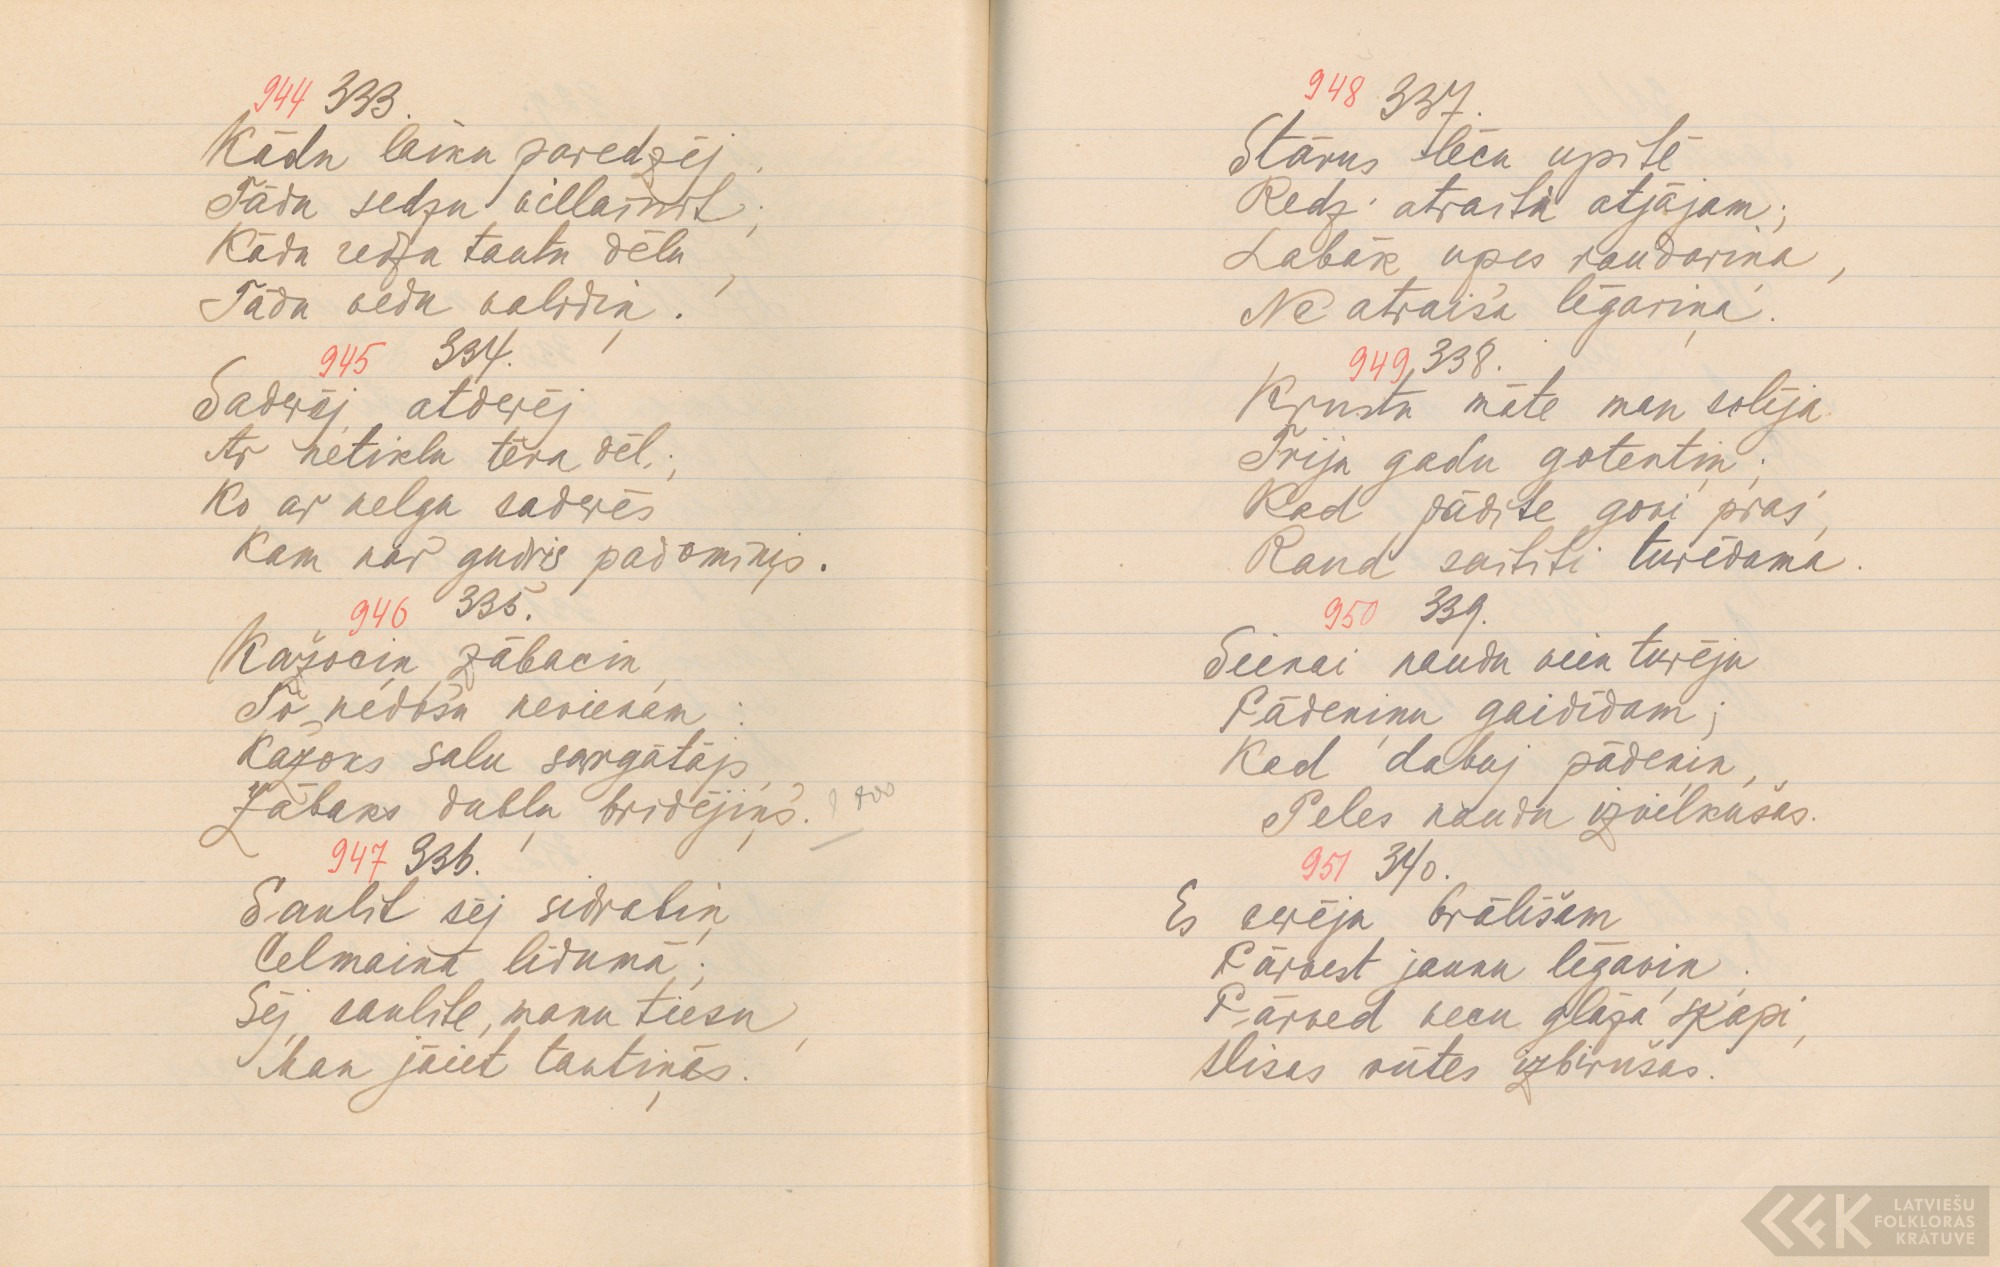 944 333.
Kādu laiku paredzēj,
Tādu sedzu villainīt;
Kādu redzu tautu dēlu,
Tādu vedu valodiņ.
945 334.
Saderēj, atderēj
Ar netiklu tēva dēl;
Ko ar velgu saderēs
Kam nav gudris padomiņis.
946 335.
Kažociņ, zābaciņ,
To nedošu nevienam:
Kažoks salu sargātājs,
Zābaks dubļu bridējiņš.
947 336.
Saulīt sēj sidrabiņ,
Celmainā līdumā;
Sēj, saulīte, manu tiesu,
Man jāiet tautiņās.
948 337.
Stāvus lēcu upītē
Redz' atraitni atjājam;
Labāk upes raudaviņa,
Ne atraiša līgaviņa.
949 338.
Krustu māte man solīja
Triju gadu gotentiņ;
Kad pādīte govi pras',
Raud saitīti turēdama.
950 339.
Sienai naudu vien turēju
Pādeniņu gaidīdam;
Kad dabuj pādeniņ,
Peles naudu izvilkušas.
951 340.
Es vērēju brālīšam
Pārvest jaunu līgaviņ.
Pārved vecu glāžu skapi,
Visas rūtes izbirušas.
LATVIEŠU
FOLKLORAS
KRĀTUVE